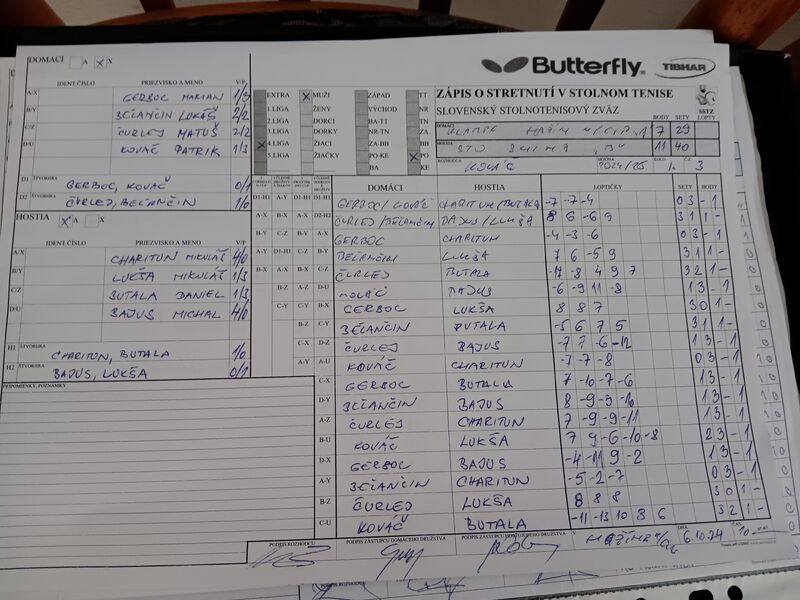 Butterfly
TIBHAR
ZÁPIS O STRETNUTÍ V STOLNOM TENISE
SLOVENSKÝ STOLNOTENISOVÝ ZVÄZ
SSTZ
DOMÁCI A X X
IDENT ČÍSLO PRIEZVISKO A MENO V/P
A/X GERBOC MARIAN 1/3
B/Y BEĽANČIN LUKÁŠ 2/2
C/Z ČURLEJ MATÚŠ 2/2
D/U KOVÁČ PATRIK 1/3
D1 ŠTVORHRA GERBOC, KOVÁČ 0/1
D2 ŠTVORHRA ČURLEJ, BEĽANČIN 1/0
HOSTIA X A X
IDENT ČÍSLO PRIEZVISKO A MENO V/P
A/X CHARITUN MIKULÁŠ 4/0
B/Y LUKŠA MIKULÁŠ 1/3
C/Z BUTALA DANIEL 1/3
D/U BAJUS MICHAL 4/0
H1 ŠTVORHRA CHARITUN, BUTALA 1/0
H2 ŠTVORHRA BAJUS, LUKŠA 0/1
PRIPOMIENKY, POZNÁMKY
EXTRA X MUŽI ZÁPAD TT
1.LIGA ŽENY VÝCHOD NR
2.LIGA DORCI BA-TT TN
3.LIGA DORKY NR-TN ZA
X 4.LIGA ŽIACI ZA-BB BB
5.LIGA ŽIAČKY PO-KE X PO
BA KE
DOMÁCI 7 29
HOSTIA 11 40
BODY SETY LOPTY
ROZHODCA KOVÁČ SEZÓNA 2024/25 KOLO 1. 3
DOMÁCI HOSTIA LOPTIČKY SETY BODY
GERBOC/KOVÁČ CHARITUN/BUTALA -7 -7 -4 0 3 - 1
ČURLEJ/BEĽANČIN BAJUS/LUKŠA 8 6 -6 9 3 1 1 -
GERBOC CHARITUN -4 -3 -6 0 3 - 1
BEĽANČIN LUKŠA 7 6 -5 9 3 1 1 -
ČURLEJ BUTALA -17 -8 4 9 7 3 2 1 -
KOVÁČ BAJUS -6 -9 11 -8 1 3 - 1
GERBOC LUKŠA 8 8 7 3 0 1 -
BEĽANČIN BUTALA -5 6 7 5 3 1 1 -
ČURLEJ BAJUS -7 7 -6 -12 1 3 - 1
KOVÁČ CHARITUN -3 -7 -8 0 3 - 1
C-X GERBOC BUTALA 7 -10 -7 -6 1 3 - 1
D-Y BEĽANČIN BAJUS 8 -9 -3 -10 1 3 - 1
A-Z ČURLEJ CHARITUN 7 -9 -9 -11 1 3 - 1
B-U KOVÁČ LUKŠA 7 9 -6 -10 -8 2 3 - 1
D-X GERBOC BAJUS -4 -11 9 -2 1 3 - 1
A-Y BEĽANČIN CHARITUN -5 -2 -7 0 3 - 1
B-Z ČURLEJ LUKŠA 8 8 8 3 0 1 -
C-U KOVÁČ BUTALA -11 -13 10 8 6 3 2 1 -
PODPIS ROZHODCU PODPIS ZÁSTUPCU DOMÁCEHO DRUŽSTVA PODPIS ZÁSTUPCU HOSŤUJÚCEHO DRUŽSTVA V DŇA 6.10.24 ČAS 10